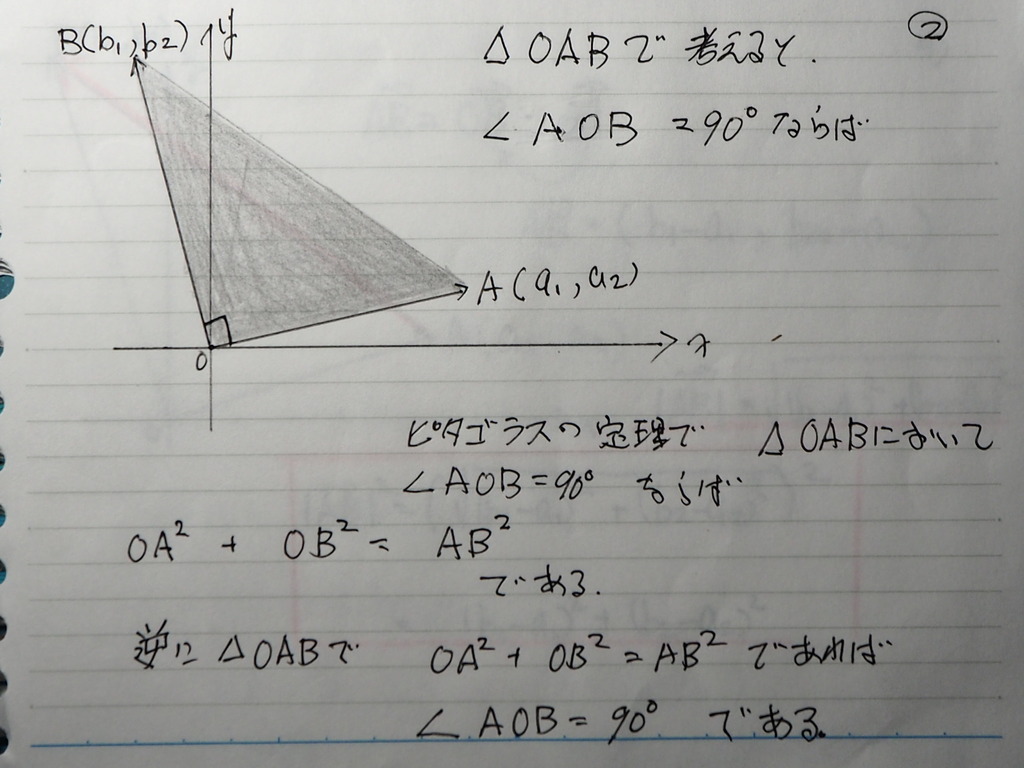 ②
B(b₁, b₂)
y
△OABで 考えると.
∠AOB = 90° ならば
A(a₁, a₂)
O
x
ピタゴラスの定理で △OABにおいて
∠AOB = 90° ならば
OA² + OB² = AB²
である.
逆に △OABで OA² + OB² = AB² であれば
∠AOB = 90° である.